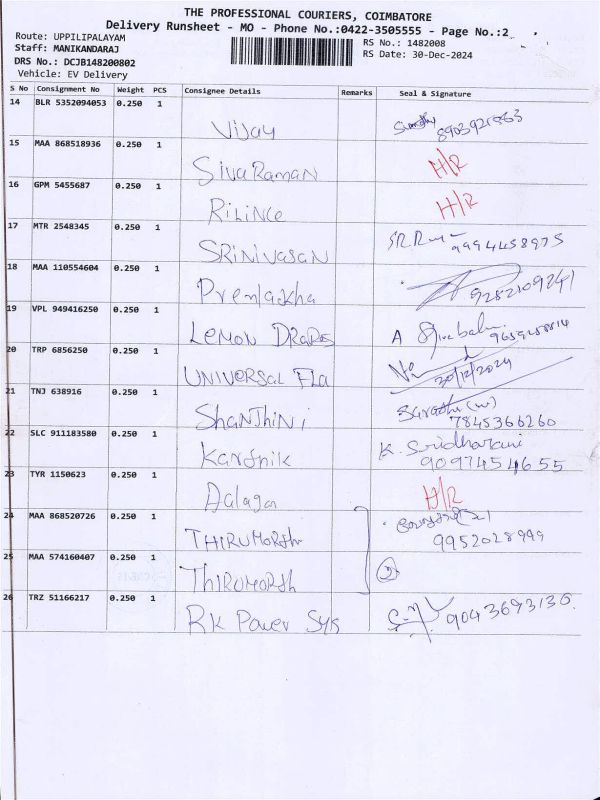 THE PROFESSIONAL COURIERS, COIMBATORE
Delivery Runsheet - MO - Phone No.:0422-3505555 - Page No.:2
Route: UPPILIPALAYAM
RS No.: 1482008
Staff: MANIKANDARAJ
RS Date: 30-Dec-2024
DRS No.: DCJB148200802
Vehicle: EV Delivery
S No Consignment No Weight PCS Consignee Details Remarks Seal & Signature
14 BLR 5352094053 0.250 1 Vijay
15 MAA 868518936 0.250 1 SivaRaman H/R
16 GPM 5455687 0.250 1 RiLiNce H/R
17 MTR 2548345 0.250 1 SRiNiVasaN 9994458975
18 MAA 110554604 0.250 1 9282109241
19 VPL 949416250 0.250 1 LEMON DRAPES A
20 TRP 6856250 0.250 1 UNIVERSAL FLA 30/12/2024
21 TNJ 638916 0.250 1 ShaNThiNi Sarathi (w) 7845366260
22 SLC 911183580 0.250 1 Karthik K. Sridharani 9097454655
23 TYR 1150623 0.250 1 H/R
24 MAA 868520726 0.250 1 9952028999
25 MAA 574160407 0.250 1 2
26 TRZ 51166217 0.250 1 RK Power Sys 9043693130